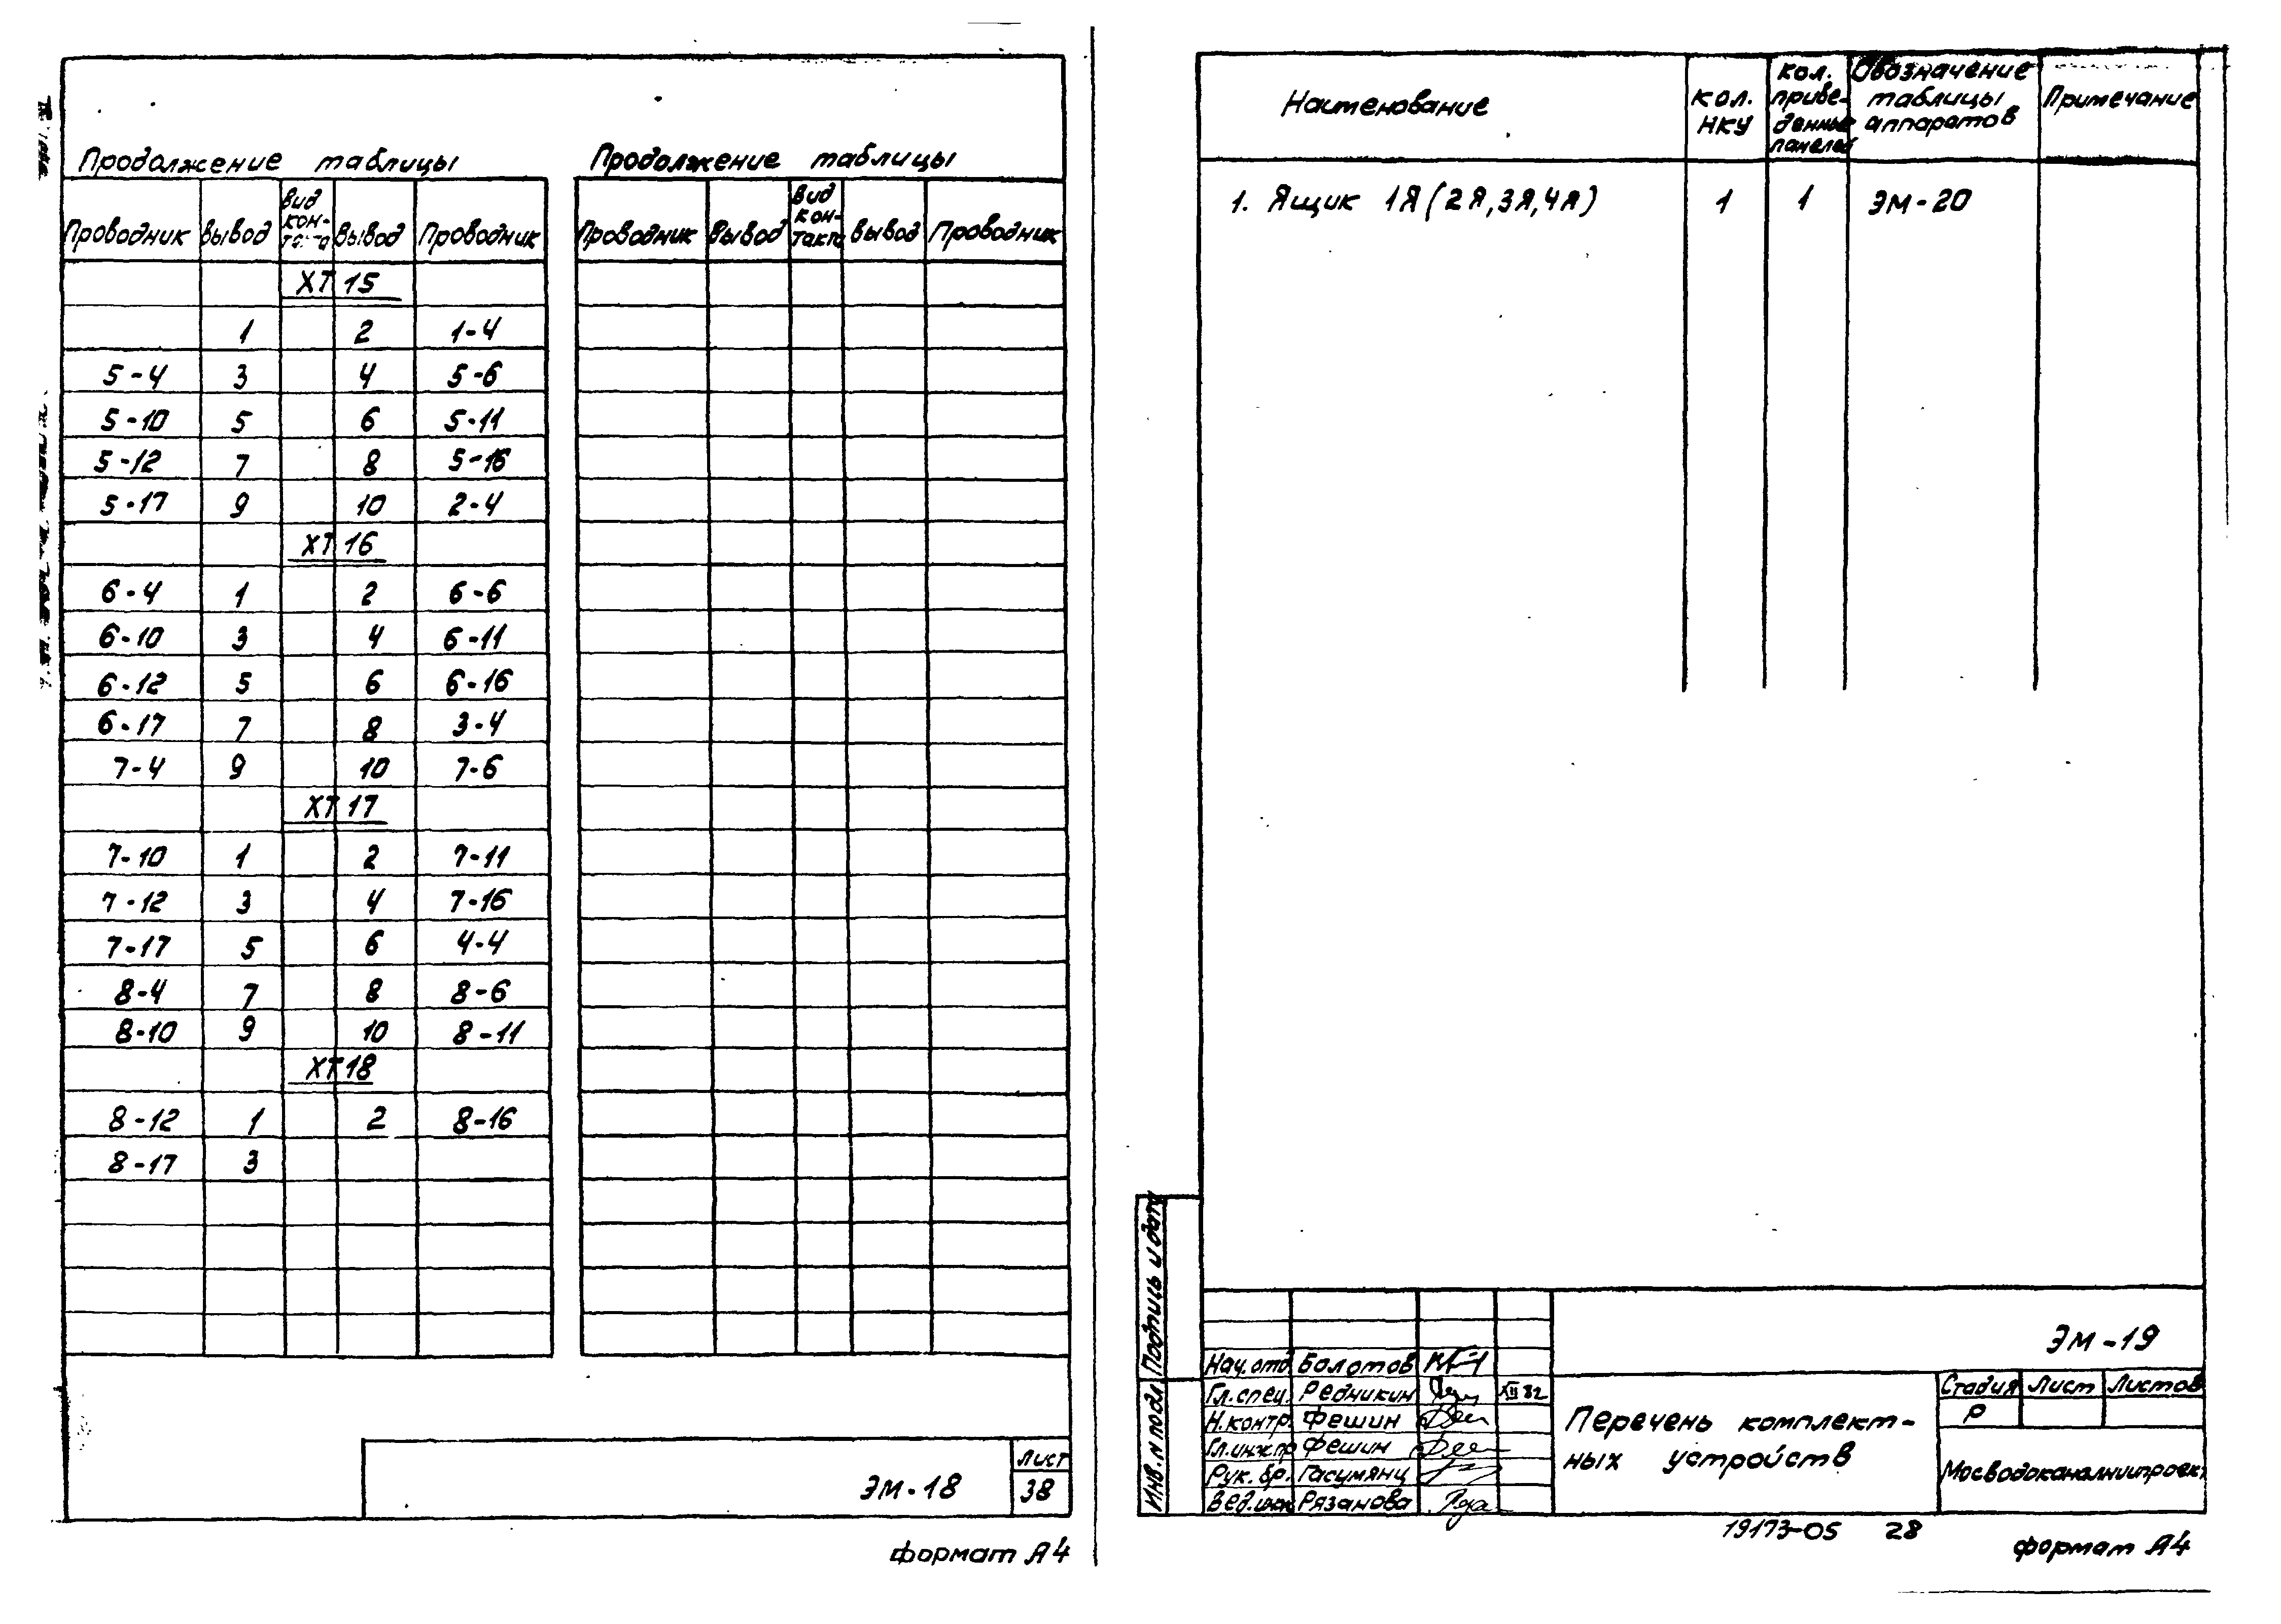 Продолжение таблицы
Проводник Вывод Вид кон-такта Вывод Проводник
ХТ 15
1 2 1-4
5-4 3 4 5-6
5-10 5 6 5-11
5-12 7 8 5-16
5-17 9 10 2-4
ХТ 16
6-4 1 2 6-6
6-10 3 4 6-11
6-12 5 6 6-16
6-17 7 8 3-4
7-4 9 10 7-6
ХТ 17
7-10 1 2 7-11
7-12 3 4 7-16
7-17 5 6 4-4
8-4 7 8 8-6
8-10 9 10 8-11
ХТ 18
8-12 1 2 8-16
8-17 3
Продолжение таблицы
Проводник Вывод Вид кон-такта Вывод Проводник
ЭМ-18
Лист
38
формат А4
Наименование
кол. НКУ
кол. приве-денных панелей
Обозначение таблицы аппаратов
Примечание
1. Ящик 1Я (2Я, 3Я, 4Я) 1 1 ЭМ-20
Подпись и дата
Инв. N подл.
ЭМ-19
Нач. отд. Болотов
Гл. спец. Редникин XII 82
Н. контр. Фешин
Гл. инж. пр. Фешин
Рук. бр. Гасумянц
Вед. инж. Рязанова
Перечень комплект-
ных устройств
Стадия Лист Листов
Р
Мосводоканалниипроект
19173-05 28
формат А4